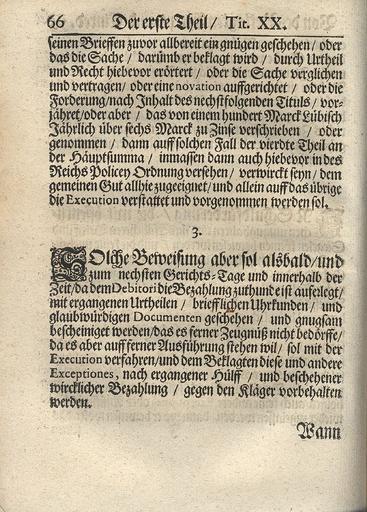 66 Der erste Theil / Tit. XX.
seinen Brieffen zuvor allbereit ein gnügen geschehen / oder
das die Sache / darümb er beklagt wird / durch Urtheil
und Recht hiebevor erörtert / oder die Sache verglichen
und vertragen / oder eine novation auffgerichtet / oder die
Forderung / nach Inhalt des nechstfolgenden Tituls / vor-
jähret / oder aber / das von einem hundert Marck Lübisch
Jährlich über sechs Marck zu Zinse verschrieben / oder
genommen / dann auff solchen Fall der vierdte Theil an
der Häuptsumma / inmassen dann auch hiebevor in des
Reichs Policey Ordnung versehen / verwirckt seyn / dem
gemeinen Gut allhie zugeeignet / und allein auff das übrige
die Execution verstattet und vorgenommen werden sol.
3.
SOlche Beweisung aber sol alsbald / und
zum nechsten Gerichts-Tage und innerhalb der
Zeit / da dem Debitori die Bezahlung zuthund eist aufferlegt /
mit ergangenen Urtheilen / briefflichen Uhrkunden / und
glaubwürdigen Documenten geschehen / und gnugsam
bescheiniget werden / das es ferner Zeugnüß nicht bedörffe /
da es aber auff ferner Ausführung stehen wil / sol mit der
Execution verfahren / und dem Beklagten diese und andere
Exceptiones, nach ergangener Hülff / und beschehener
wircklicher Bezahlung / gegen den Kläger vorbehalten
werden.
Wann